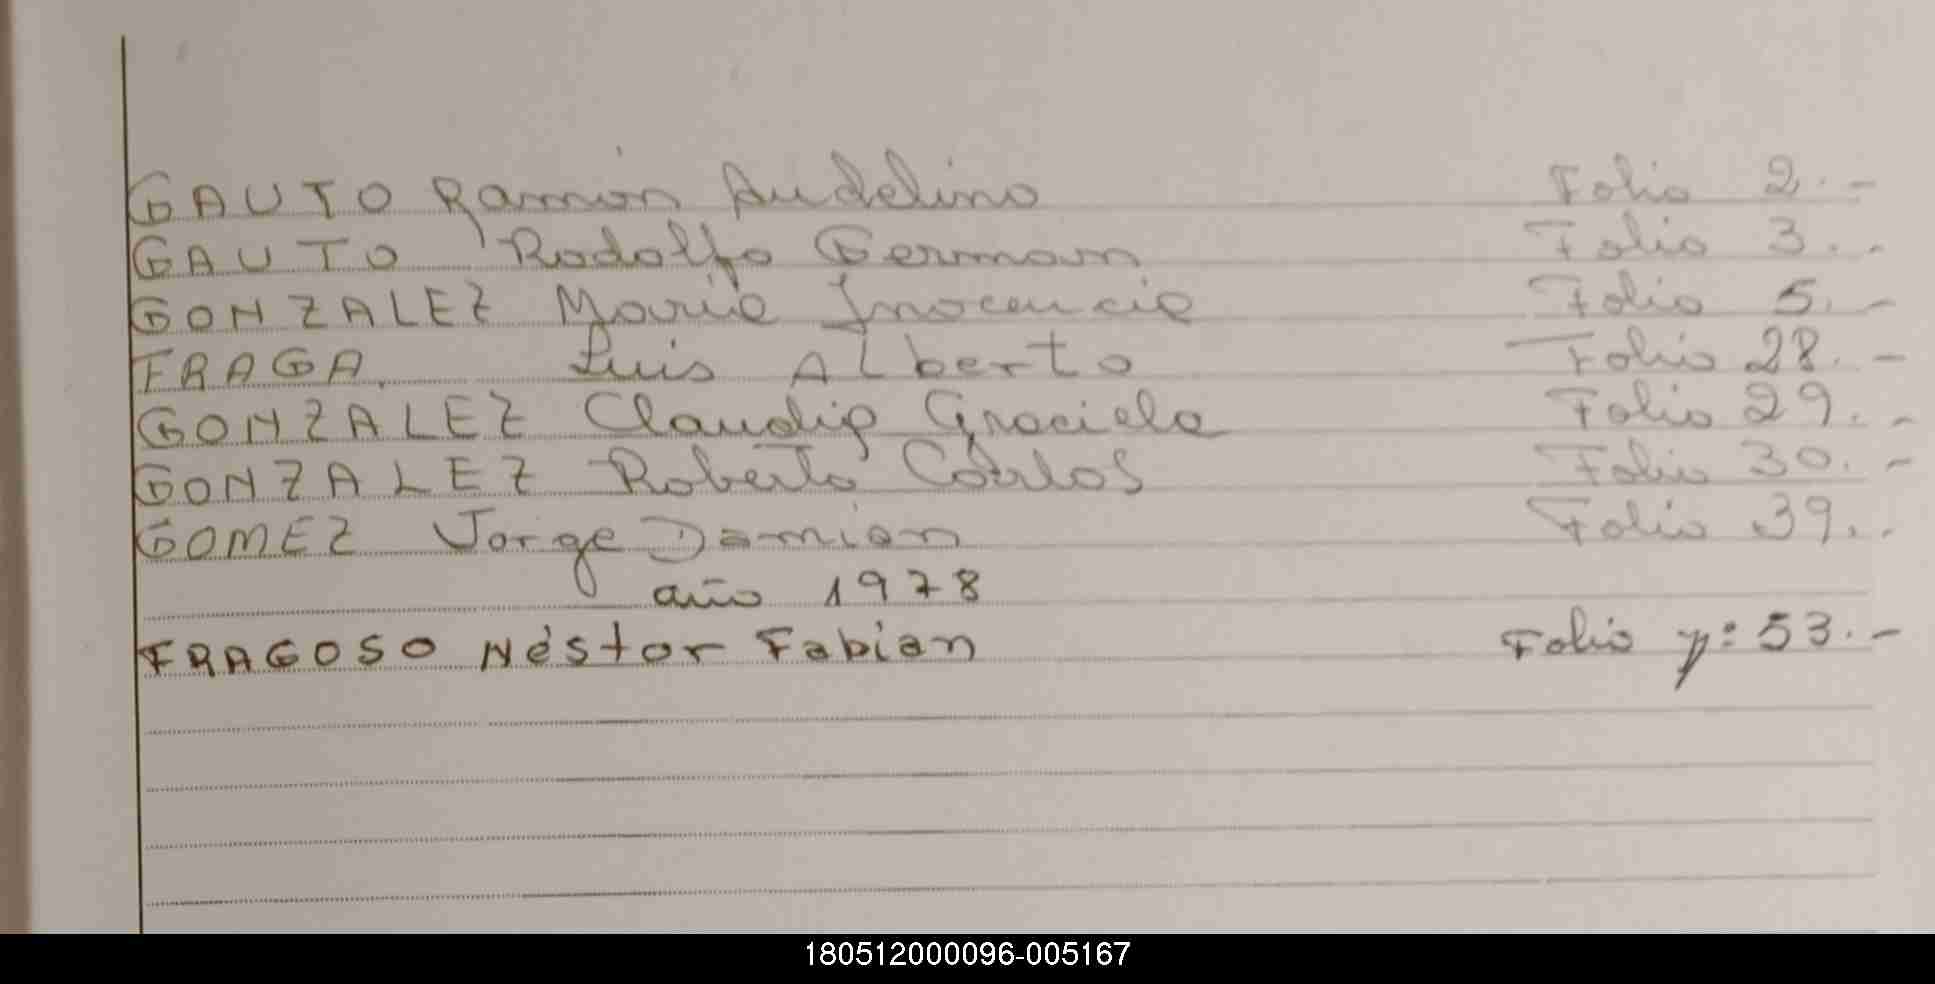 GAUTO Ramón Audelino Folio 2.-
GAUTO Rodolfo German Folio 3.-
GONZALEZ Maria Inocencia Folio 5.-
FRAGA. Luis Alberto Folio 28.-
GONZALEZ Claudia Graciela Folio 29.-
GONZALEZ Roberto Carlos Folio 30.-
GOMEZ Jorge Damian Folio 39.-
año 1978
FRAGOSO Néstor Fabian Folio nº: 53.-
180512000096-005167